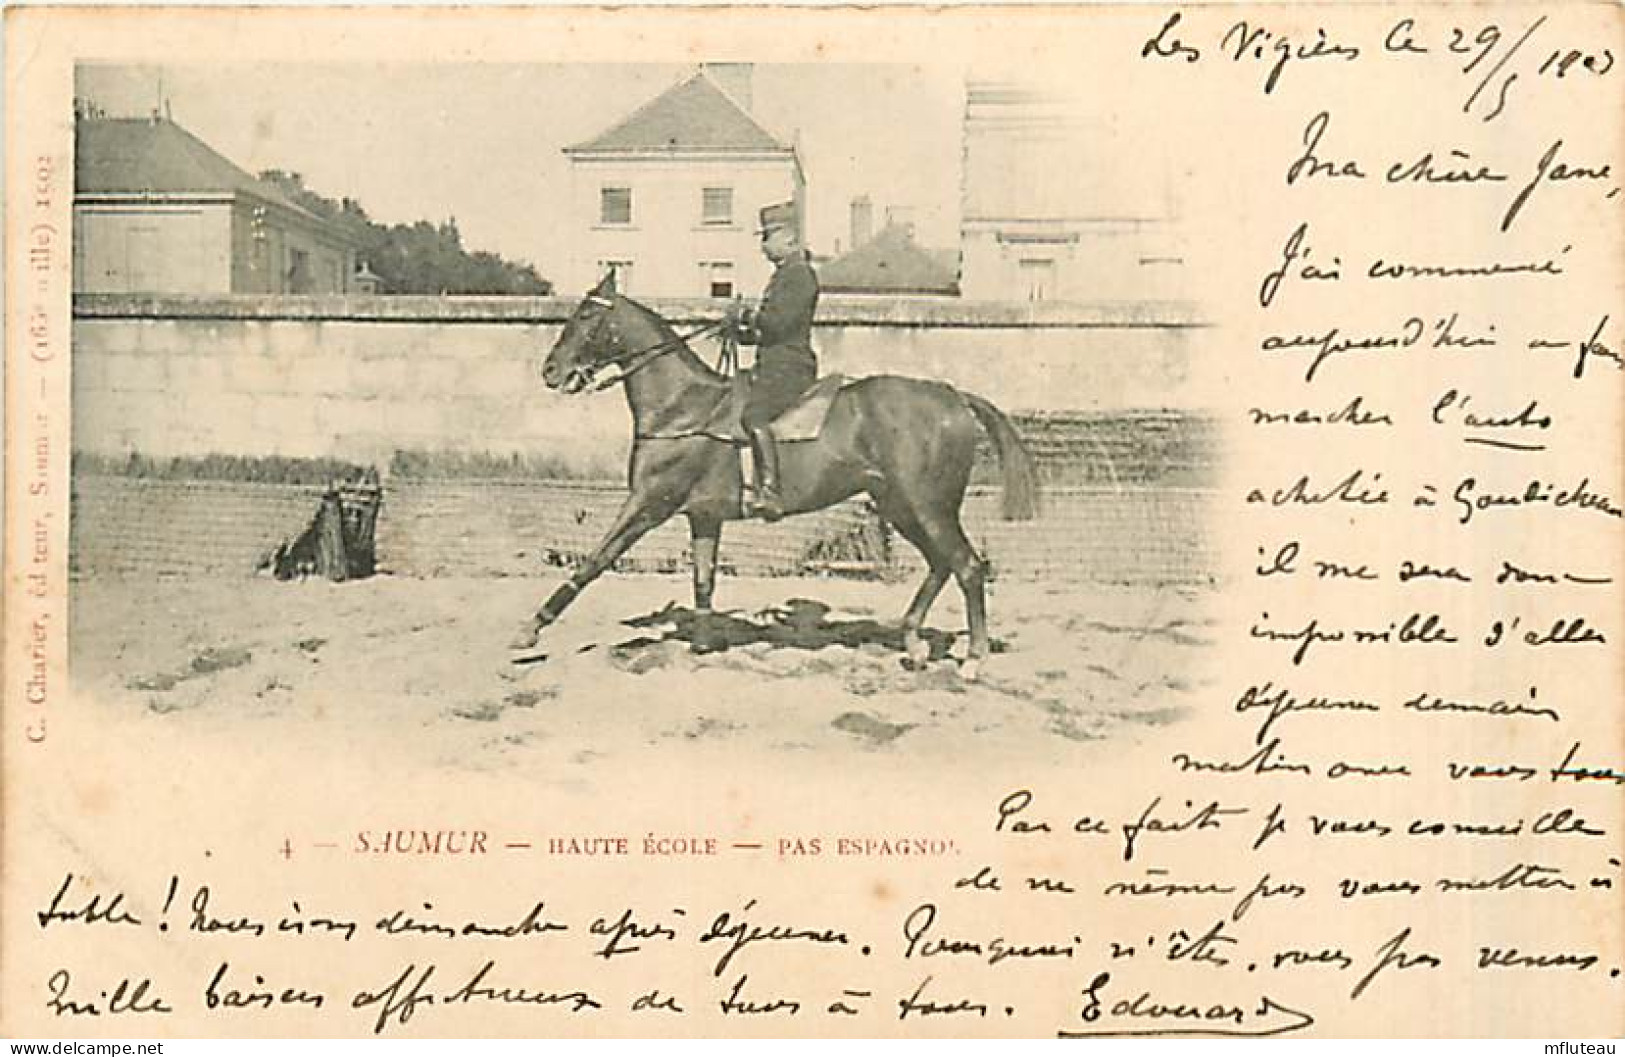 Les Vigiers le 29/5 1903
Ma chère Jane,
J'ai commencé
aujourd'hui à faire
marcher l'auto
achetée à
il me sera donc
impossible d'aller
déjeuner demain
matin avec vous tous
Par ce fait je vous conseille
de ne même pas vous mettre à
table ! Nous irons dimanche après déjeuner. Pourquoi n'êtes-vous pas venus.
Mille baisers affectueux de tous à tous. Edouard
4 — SAUMUR — HAUTE ÉCOLE — PAS ESPAGNOL
C. Charier, éditeur, Saumur — 1502
mfluteau